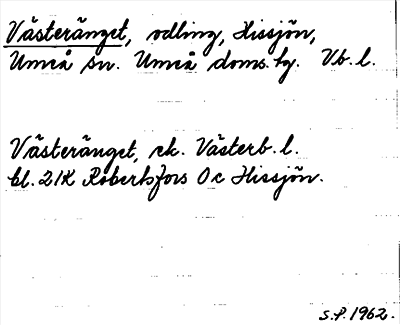 Västeränget, odling, Hissjön,
Umeå sn. Umeå doms.hg. Vb. l.
Västeränget, ek. Västerb. l.
bl. 21K Robertsfors 0c Hissjön.
S.P. 1962.